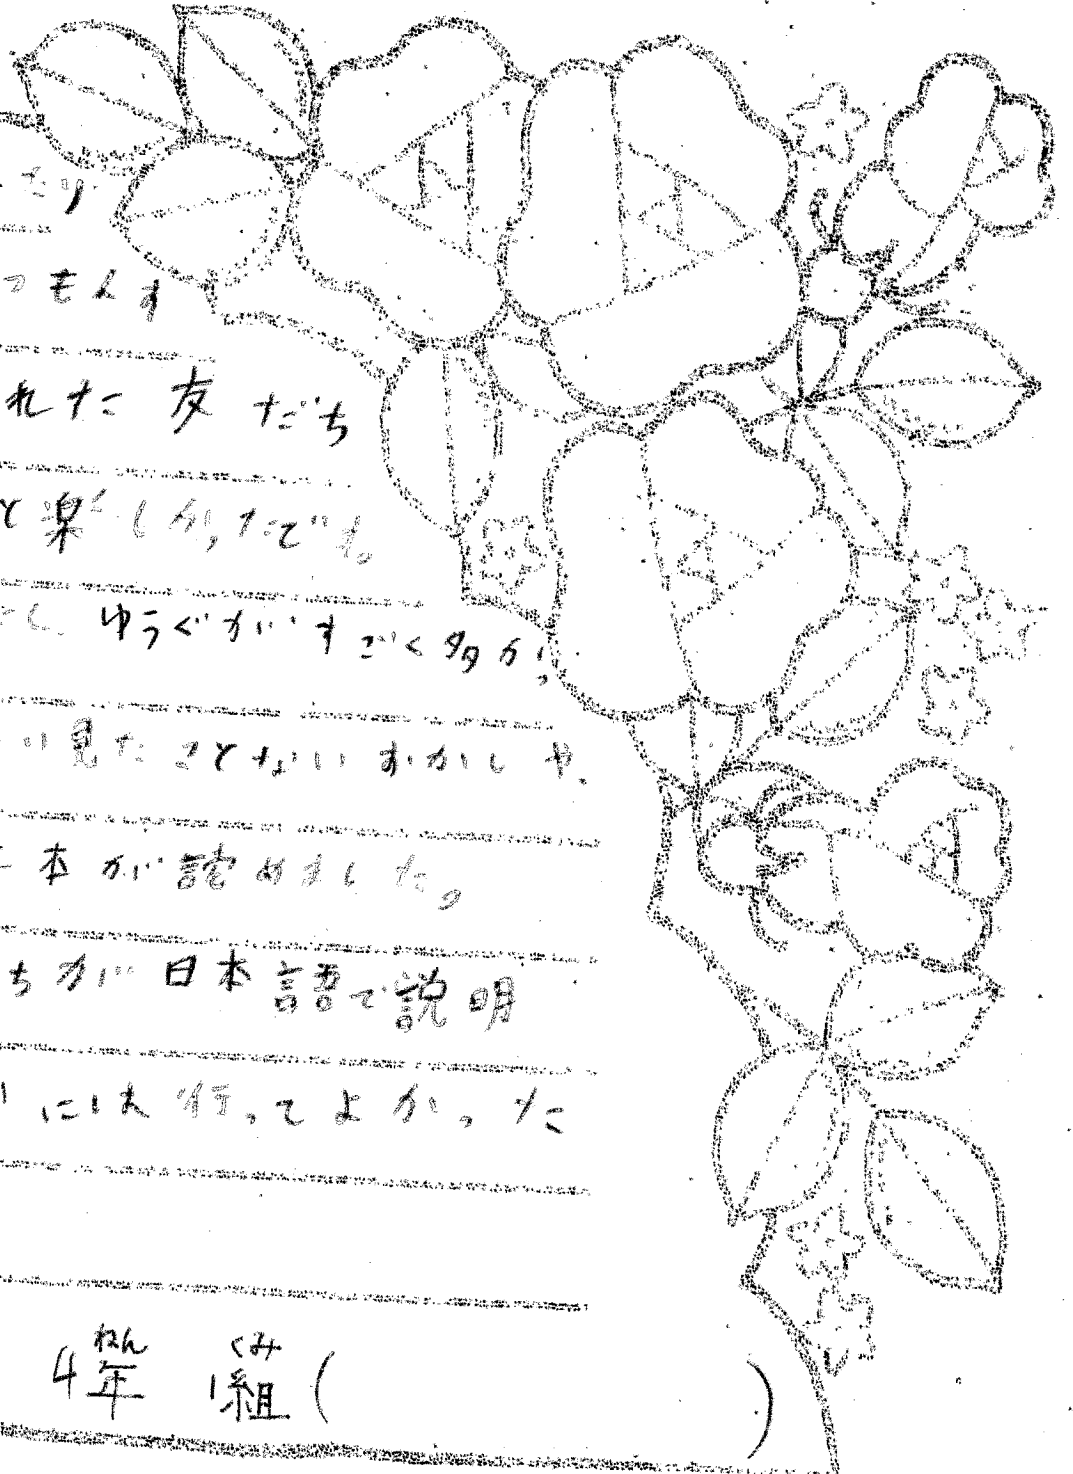 たり
つもんす
れた友だち
と楽しかったです。
ゆうぐがすごく多かっ
い見たことないおかしや、
本が読めました。
ちが日本語で説明
には行ってよかった
4年 ねん 1組 くみ ( )